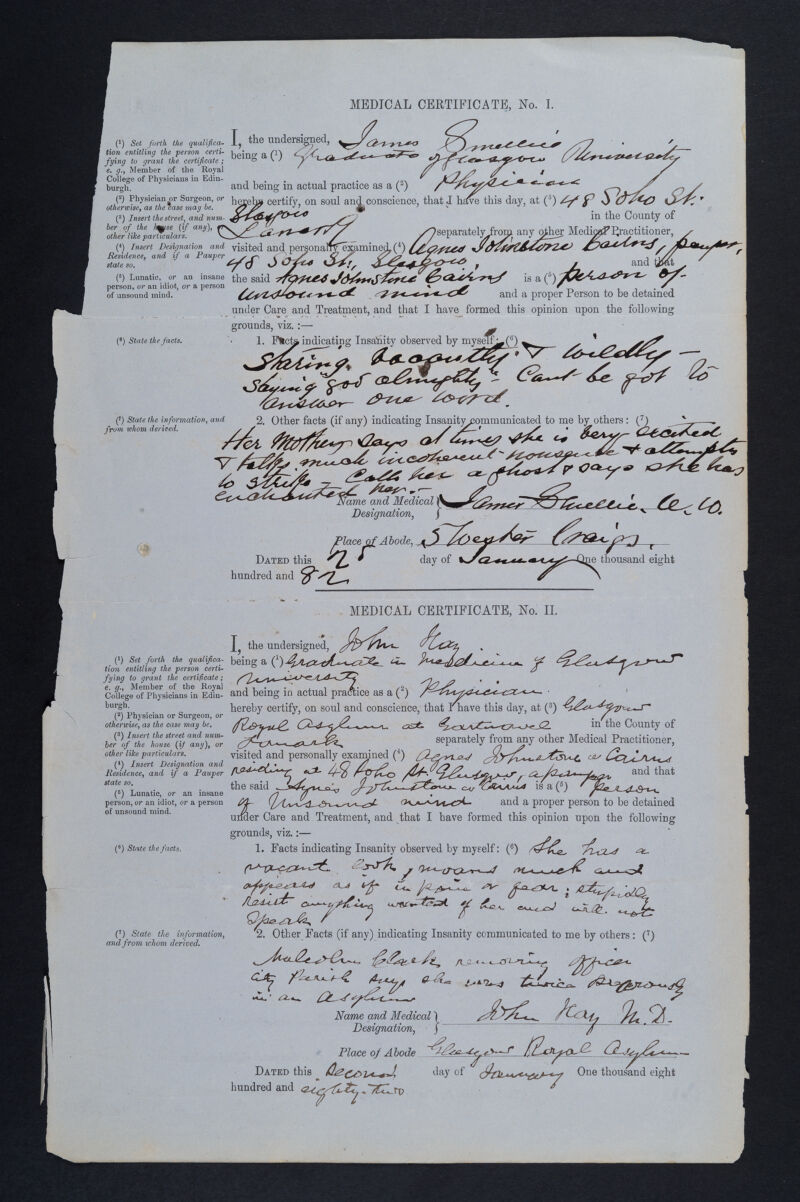 MEDICAL CERTIFICATE, No. I.
(1) Set forth the qualifica-
tion entitling the person certi-
fying to grant the certificate;
e. g., Member of the Royal
College of Physicians in Edin-
burgh.
(2) Physician or Surgeon, or
otherwise, as the case may be.
(3) Insert the street, and num-
ber of the house (if any), or
other like particulars.
(4) Insert Designation and
Residence, and if a Pauper
state so.
(5) Lunatic, or an insane
person, or an idiot, or a person
of unsound mind.
I, the undersigned, James Smellie
being a (1) Graduate of Glasgow University
and being in actual practice as a (2) Physician
hereby certify, on soul and conscience, that I have this day, at (3) 48 Soho St.
Glasgow in the County of
Lanark separately from any other Medical Practitioner,
visited and personally examined (4) Agnes Johnstone Cairns, pauper,
48 Soho St, Glasgow and that
the said Agnes Johnstone Cairns is a (5) person of
unsound mind and a proper Person to be detained
under Care and Treatment, and that I have formed this opinion upon the following
grounds, viz. :—
(6) State the facts.
1. Facts indicating Insanity observed by myself: (6)
Staring vacantly & wildly —
Saying "god almighty" - Cant be got to
answer one word.
(7) State the information, and
from whom derived.
2. Other facts (if any) indicating Insanity communicated to me by others: (7)
Her Mother says at times she is very excited
& talks much incoherent nonsense & attempts
to strike - Calls her a ghost & says she has
enchanted her. -
Name and Medical Designation, James Smellie, M.D.
Place of Abode, 5 Wester Craigs.
DATED this 2d day of January One thousand eight
hundred and 82
MEDICAL CERTIFICATE, No. II.
(1) Set forth the qualifica-
tion entitling the person certi-
fying to grant the certificate;
e. g., Member of the Royal
College of Physicians in Edin-
burgh.
(2) Physician or Surgeon, or
otherwise, as the case may be.
(3) Insert the street and num-
ber of the house (if any), or
other like particulars.
(4) Insert Designation and
Residence, and if a Pauper
state so.
(5) Lunatic, or an insane
person, or an idiot, or a person
of unsound mind.
I, the undersigned, John Hay
being a (1) Graduate in Medicine of Glasgow
University
and being in actual practice as a (2) Physician
hereby certify, on soul and conscience, that I have this day, at (3) Glasgow
Royal Asylum at Gartnavel in the County of
Lanark separately from any other Medical Practitioner,
visited and personally examined (4) Agnes Johnstone or Cairns
residing at 48 Soho St. Glasgow, a pauper and that
the said Agnes Johnstone or Cairns is a (5) person
of Unsound mind and a proper person to be detained
under Care and Treatment, and that I have formed this opinion upon the following
grounds, viz. :—
(6) State the facts.
1. Facts indicating Insanity observed by myself: (6) She has a
vacant look, moans much and
appears as if in pain or fear; stupidly
resist anything wanted of her and will not
Speak
(7) State the information,
and from whom derived.
2. Other Facts (if any) indicating Insanity communicated to me by others: (7)
Malcolm Clark removing officer
City Parish says she was twice previously
in an Asylum
Name and Medical Designation, John Hay M.D.
Place of Abode Glasgow Royal Asylum
DATED this Second day of January One thousand eight
hundred and eighty-two